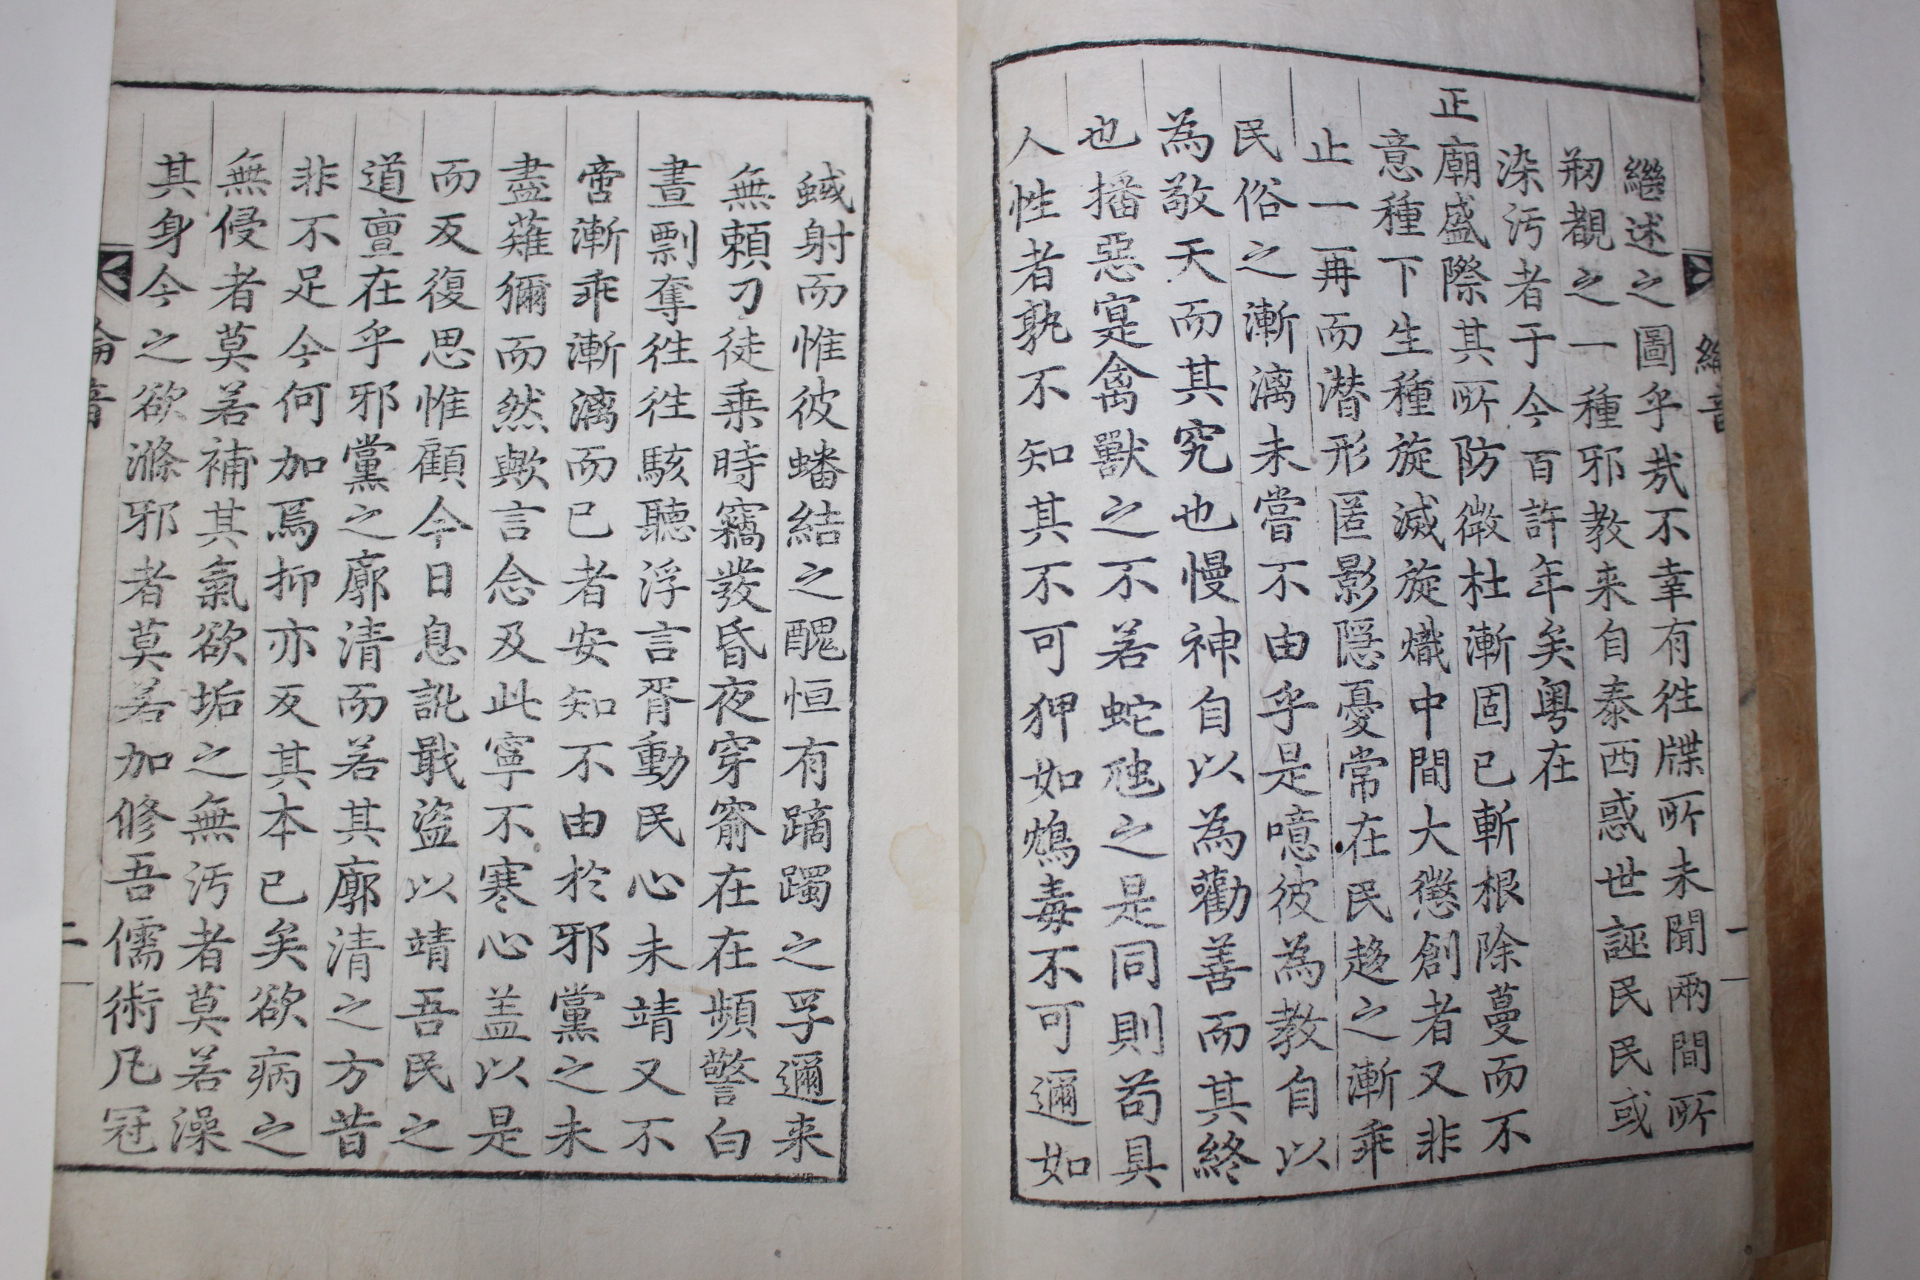 繼述之圖乎哉不幸有徃牒所未聞兩間所
刱覩之一種邪教来自泰西惑世誣民民或
染汚者于今百許年矣粤在
正廟盛際其所防微杜漸固已斬根除蔓而不
意種下生種旋滅旋熾中間大懲創者又非
止一再而潜形匿影隱憂常在民趍之漸乖
民俗之漸漓未嘗不由乎是噫彼為教自以
為敬天而其究也慢神自以為勸善而其終
也播惡寔禽獸之不若蛇虺之是同則苟具
人性者孰不知其不可狎如鴆毒不可邇如
蜮射而惟彼蟠結之醜恒有蹢躅之孚邇来
無頼刁徒乗時竊發昏夜穿窬在在頻警白
晝剽奪徃徃駭聽浮言胥動民心未靖又不
啻漸乖漸漓而已者安知不由於邪黨之未
盡薙獮而然歟言念及此寧不寒心盖以是
而反復思惟顧今日息訛戢盜以靖吾民之
道亶在乎邪黨之廓清而若其廓清之方昔
非不足今何加焉抑亦反其本已矣欲病之
無侵者莫若補其氣欲垢之無汚者莫若澡
其身今之欲滌邪者莫若加修吾儒術凡冠
綸音
一
綸音
二